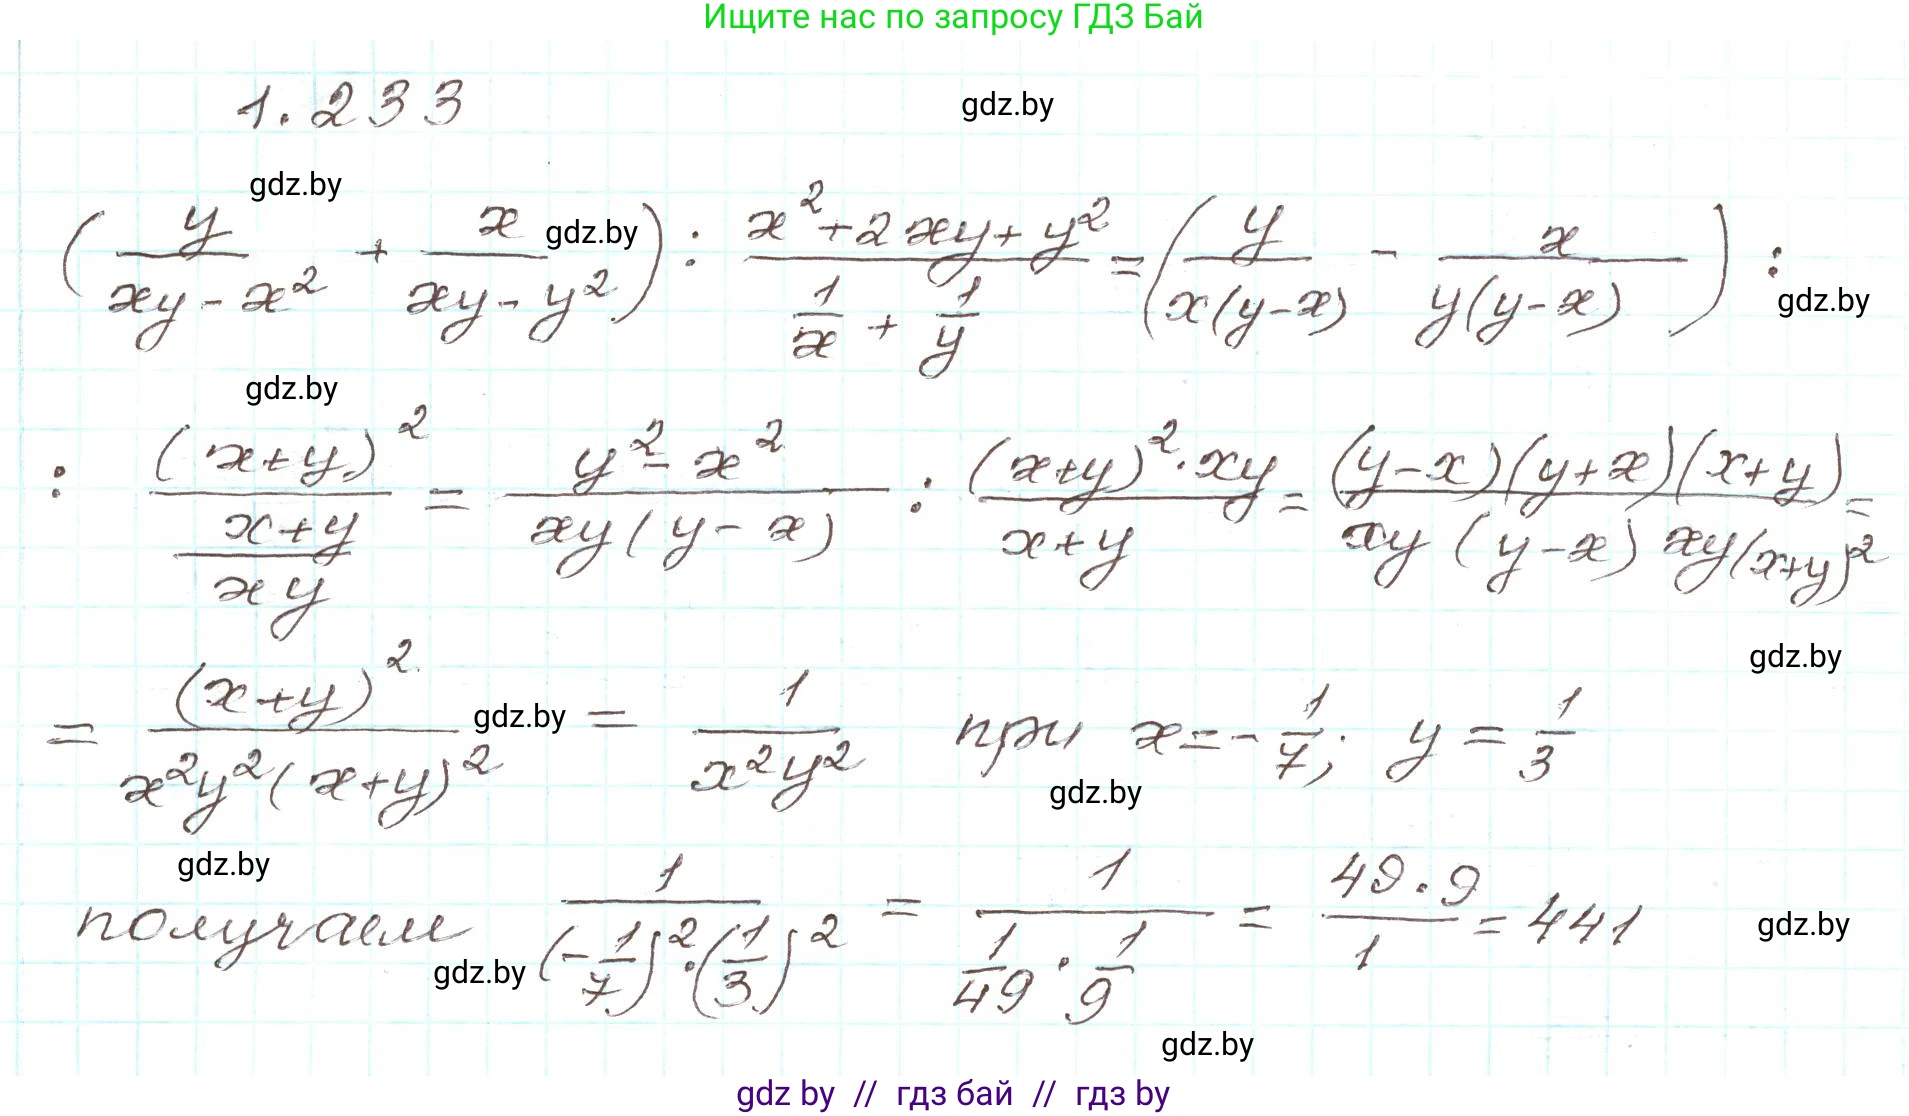 Ищите нас по запросу ГДЗ Бай
1.233
gdz.by
gdz.by
(y/(xy-x²) + x/(xy-y²)) : (x²+2xy+y²)/(1/x + 1/y) = (y/(x(y-x)) - x/(y(y-x))) :
gdz.by
gdz.by
gdz.by
: (x+y)²/((x+y)/(xy)) = (y²-x²)/(xy(y-x)) : ((x+y)²·xy)/(x+y) = ((y-x)(y+x)(x+y))/(xy(y-x)xy(x+y)²) =
gdz.by
= (x+y)²/(x²y²(x+y)²) = 1/(x²y²) при x=-1/7; y=1/3
gdz.by
gdz.by
gdz.by
получаем 1/((-1/7)²·(1/3)²) = 1/(1/49·1/9) = (49·9)/1 = 441
gdz.by
gdz.by
gdz.by
gdz by // гдз бай // гдз by